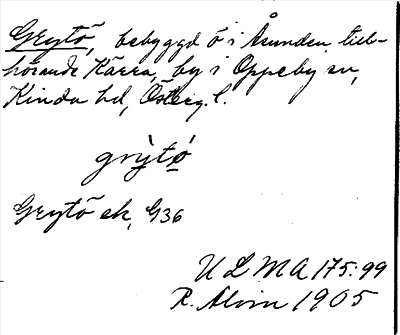 Grytö, bebyggd ö i Åsunden till-
hörande Kärra, by i Oppeby sn,
Kinda hd, Österg. l.
grỳtö̀
Grytö ek, G36
U L M A 175:99
R. Alvin 1905